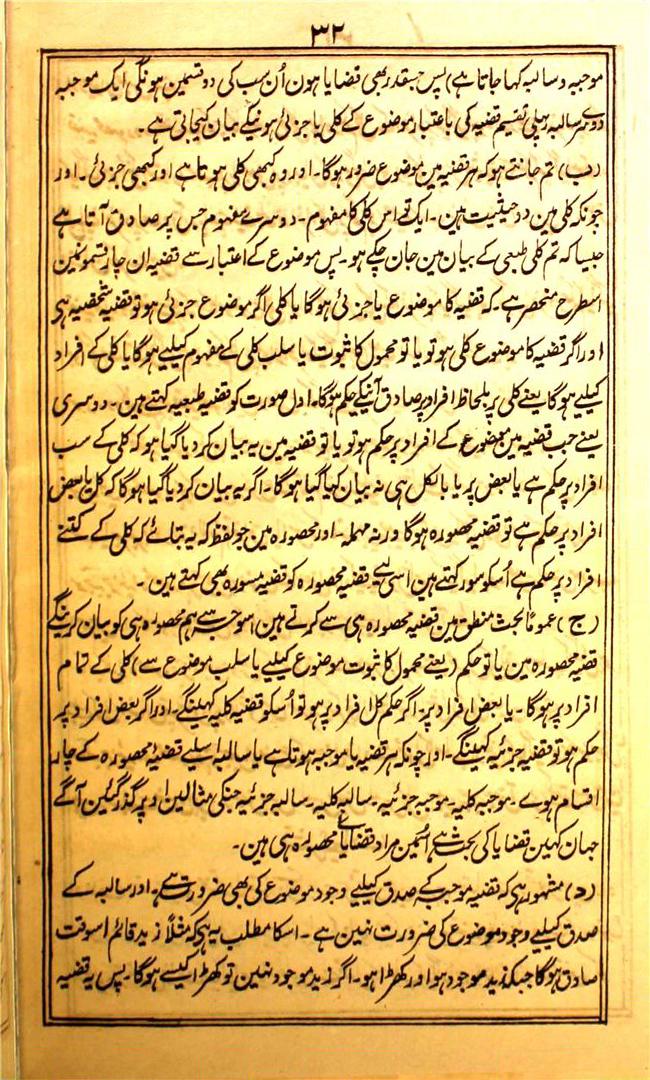 ۳۲
موجبہ و سالبہ کہا جاتا ہے) پس جسقدر بھی قضایا ہون اُن سب کی دو قسمین ہونگی ایک موجبہ
دوسرے سالبہ پہلی تقسیم قضیہ کی باعتبار موضوع کے کلی یا جزئی ہونیکے بیان کیجاتی ہے۔
(ب) تم جانتے ہو کہ ہر قضیہ مین موضوع ضرور ہوگا۔ اور وہ کبھی کلی ہوتا ہے اور کبھی جزئی۔ اور
چونکہ کلی مین دو حیثیت ہین۔ ایک تے اس کلی کا مفہوم۔ دوسرے مفہوم جس پر صادق آتا ہے
جیسا کہ تم کلی طبعی کے بیان مین جان چکے ہو۔ پس موضوع کے اعتبار سے قضیہ ان چار قسمونمین
اسطرح منحصر ہے۔ کہ قضیہ کا موضوع یا جزئی ہوگا یا کلی اگر موضوع جزئی ہو تو قضیہ شخصیہ ہی
اور اگر قضیہ کا موضوع کلی ہو تو یا تو محمول کا ثبوت یا سلب کلی کے مفہوم کیلیے ہوگا یا کلی کے افراد
کیلیے ہوگا یعنے کلی پر بلحاظ افراد پر صادق آنیکے حکم ہوگا۔ اول صورت کو قضیہ طبعیہ کہتے ہین۔ دوسری
یعنے جب قضیہ مین موضوع کے افراد پر حکم ہو تو یا تو قضیہ مین یہ بیان کر دیا گیا ہو کہ کلی کے سب
افراد پر حکم ہے یا بعض پر یا بالکل ہی نہ بیان کیا گیا ہوگا۔ اگر یہ بیان کر دیا گیا ہوگا کہ کل یا بعض
افراد پر حکم ہے تو قضیہ محصورہ ہوگا ورنہ مہملہ۔ اور محصورہ مین جو لفظ کہ یہ بتائے کہ کلی کے کتنے
افراد پر حکم ہے اُسکو سور کہتے ہین اسی لیے قضیہ محصورہ کو قضیہ مسورہ بھی کہتے ہین۔
(ج) عموماً بحث منطق مین قضیہ محصورہ ہی سے کرتے ہین اسوجہ سے ہم محصورہ ہی کو بیان کرینگے
قضیہ محصورہ مین یا تو حکم (یعنے محمول کا ثبوت موضوع کیلیے یا سلب موضوع سے) کلی کے تمام
افراد پر ہوگا۔ یا بعض افراد پر۔ اگر حکم کل افراد پر ہو تو اُسکو قضیہ کلیہ کہینگے۔ اور اگر بعض افراد پر
حکم ہو تو قضیہ جزئیہ کہینگے۔ اور چونکہ ہر قضیہ یا موجبہ ہوتا ہے یا سالبہ اسلیے قضیہ محصورہ کے چار
اقسام ہوے۔ موجبہ کلیہ۔ موجبہ جزئیہ۔ سالبہ کلیہ۔ سالبہ جزئیہ جنکی مثالین اوپر گذر گئین آگے
جہان کہین قضایا کی بحث ہے اسمین مراد قضایائے محصورہ ہی ہین۔
(د) مشہور ہی کہ قضیہ موجبہ کے صدق کیلیے وجود موضوع کی بھی ضرورت ہے۔ اور سالبہ کے
صدق کیلیے وجود موضوع کی ضرورت نہین ہے۔ اسکا مطلب یہ ہی کہ مثلاً زید قائم اسوقت
صادق ہوگا جبکہ زید موجود ہو اور کھڑا ہو۔ اگر زید موجود نہین تو کھڑا کیسے ہوگا۔ پس یہ قضیہ